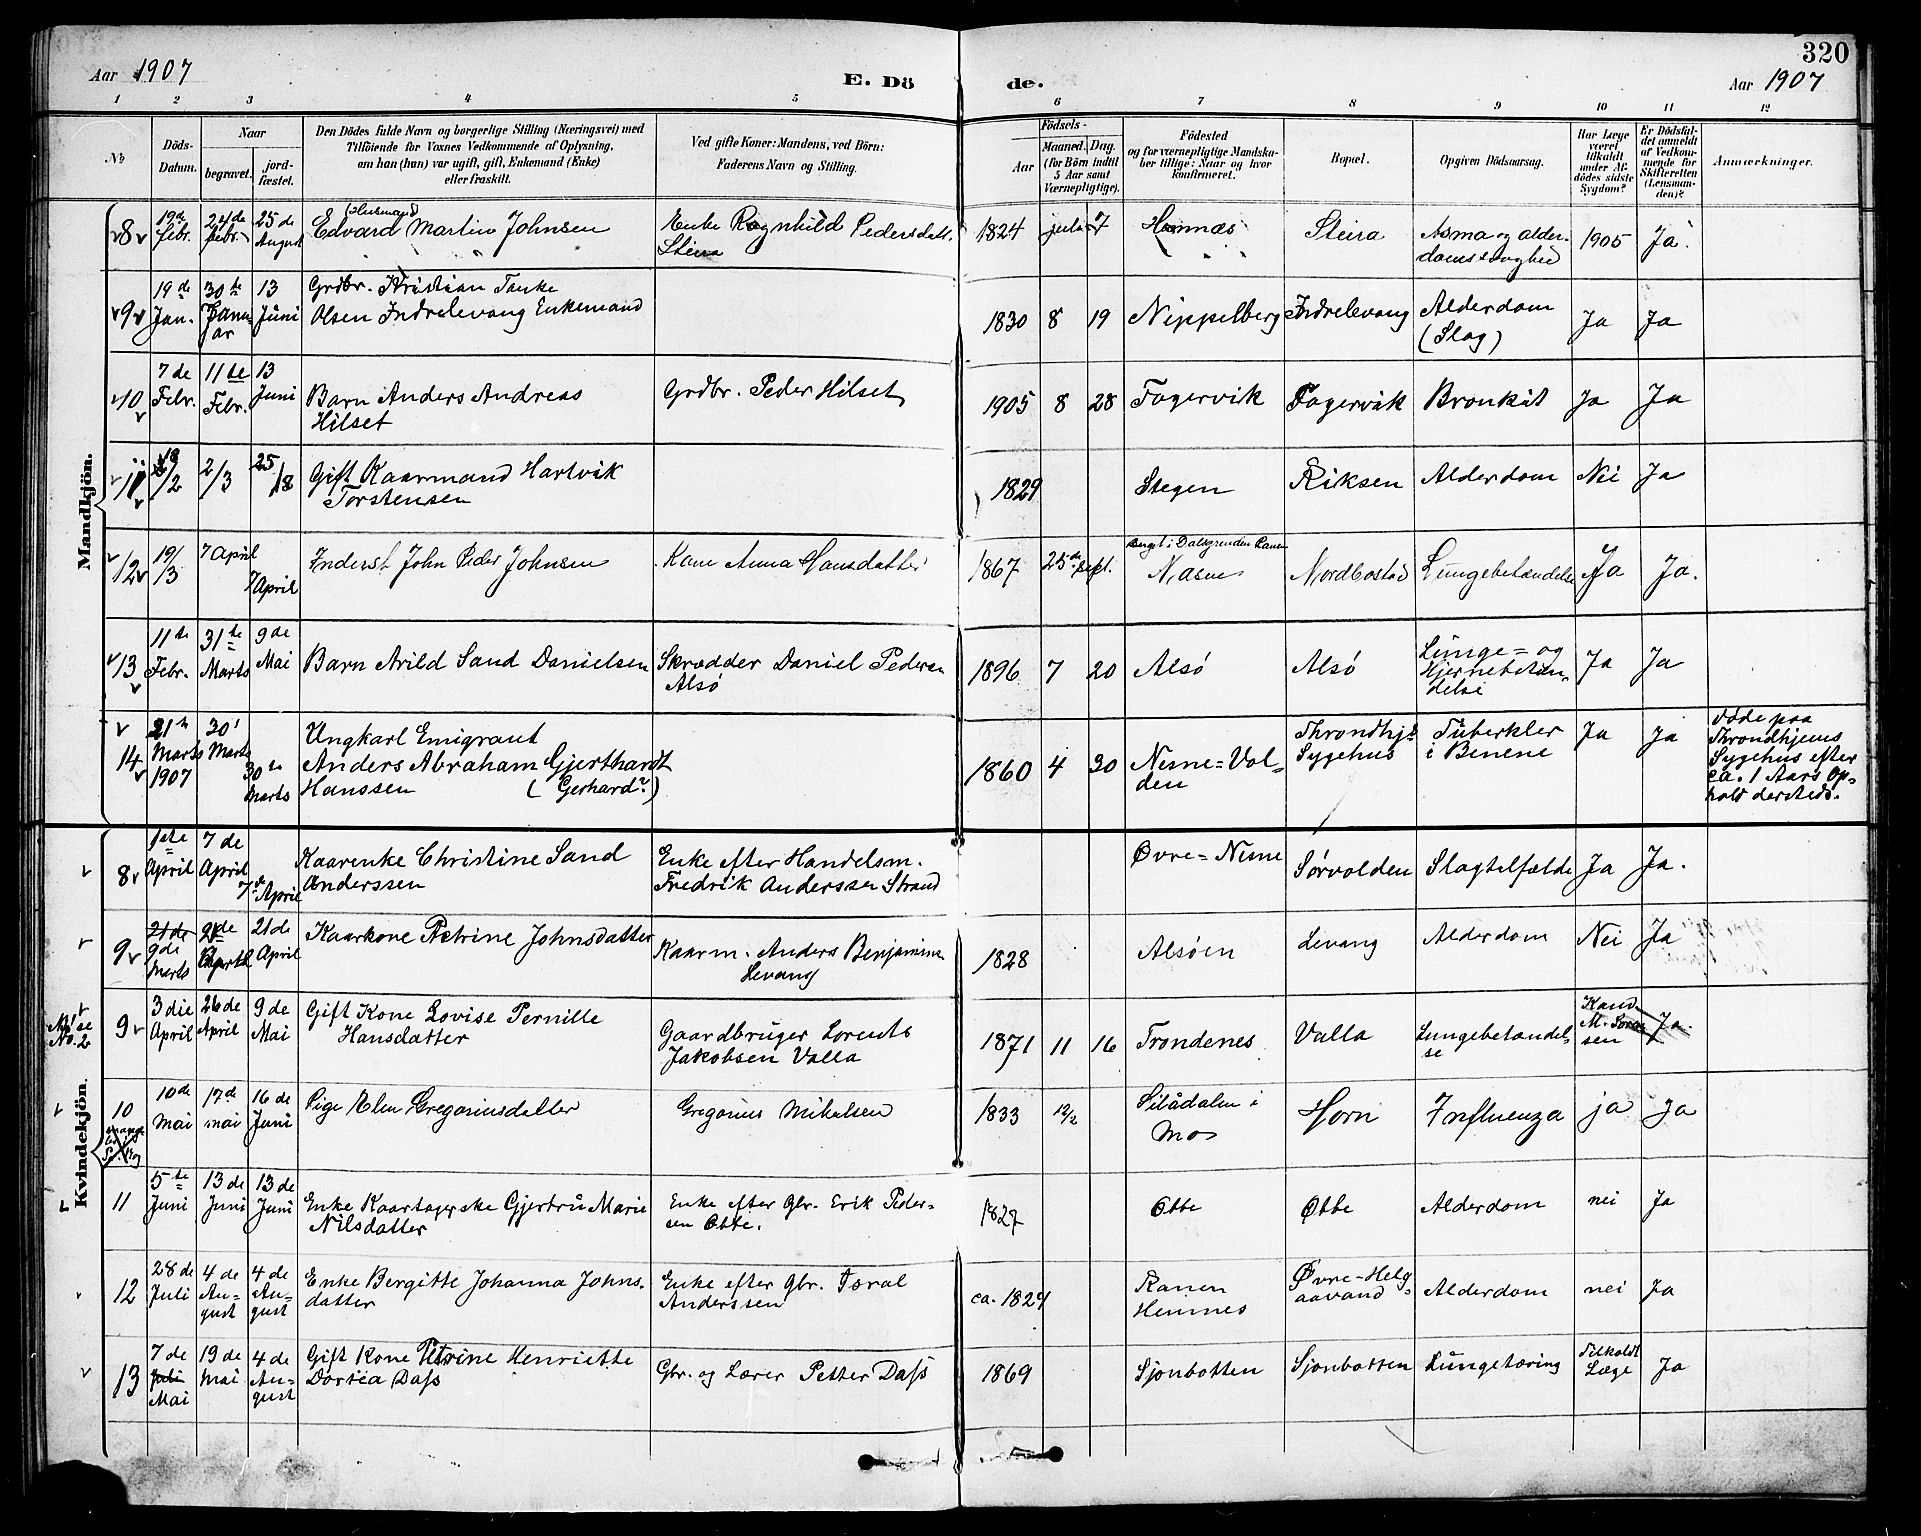 320
Aar 1907
E. Dö
de.
Aar 1907
1 2 3 4 5 6 7 8 9 10 11 12
No
Döds-
Datum.
Naar
begravet.
jord-
fæstet.
Den Dödes fulde Navn og borgerlige Stilling (Næringsvei) med
Tilföiende for Voxnes Vedkommende af Oplysning,
om han (hun) var ugift, gift, Enkemand (Enke)
eller fraskilt.
Ved gifte Koner: Mandens, ved Börn:
Faderens Navn og Stilling.
Födsels-
Aar
Maaned. Dag.
(for Börn indtil
5 Aar samt
Værnepligtige).
Födested
og for værnepligtige Mandska-
ber tillige: Naar og hvor
konfirmeret.
Bopæl.
Opgiven Dödsaarsag.
Har Læge
været
tilkaldt
under Af-
dödes sidste
Sygdom?
Er Dödsfal-
det anmeldt
af Vedkom-
mende for
Skifteretten
(Lensman-
den)?
Anmærkninger.
Mandkjön.
8 19de Febr. 24de Febr. 25de August
(Husmand)
Edvard Martin Johnsen
Enke Ragnhild Pedersdatt.
Steira
1824 juli 7 Hamnæs Steira
Asma og alder-
domssvaghed
1905 Ja.
9 19de Jan. 30te Januar 13 Juni
Grdbr. Kristian Tanke
Olsen Indrelevang Enkemand
1830 8 19 Nippelberg Indrelevang
Alderdom
(Slag)
Ja Ja
10 7de Febr. 11te Febr. 13 Juni
Barn Anders Andreas
Hilset
Grdbr. Peder Hilset
1905 8 28 Fagervik Fagervik Bronkit Ja Ja
11 19/2 2/3 25/8
Gift Kaarmand Hartvik
Torstensen
1829 Stegen Riksen Alderdom Nei Ja
12 19/3 7 April 7 April
Inderst John Peder Johnsen
Kone Anna Hansdatter
1867 25de sept.
Nesne Nordbostad Lungebetændelse Ja Ja.
13 11te Febr. 31te Marts 9de Mai
Barn Arild Sand Danielsen
Skrædder Daniel Pedersen
Alsö
1896 7 20 Alsö Alsö
Lunge= og
Hjernebetæn-
delse
Ja Ja
14 21te Marts 1907 30' Marts 30te Marts
Ungkarl Emigrant
Anders Abraham Gjerthardt
Hanssen (Gerhard?)
1860 4 30
Nesne=Vol-
den
Throndhjs
Sygehus
Tuberkler
i Benene
Ja Ja
Döde paa
Throndhjems
Sygehus efter
ca. 1 Aars Op-
hold dersteds.
Kvindekjön.
8 1ste April 7de April 7de April
Kaarenke Christine Sand
Anderssen
Enke efter Handelsm.
Fredrik Anderssen Strand
Øvre=Nesne Sørvolden Slagtilfælde Ja Ja.
9 21de 9de Marts 21de April 21de April
Kaarkone Petrine Johnsdatter
Kaarm. Anders Benjaminsen
Levang
1828 Alsöen Levang Alderdom Nei Ja
9 3die April 26de April 9de Mai
Gift Kone Lovise Pernille
Hansdatter
Gaardbruger Lorents
Jakobsen Valla
1871 11 16 Trondenes Valla
Lungebetændel-
se
Kand.
M. Soren-
sen
Ja.
10 10de Mai 17de mai 16de Juni
Pige Elen Gregoriusdatter
Gregorius Mikalsen
1833 12/2
Silådalen i
Mo
Horn Influenza ja ja
11 5te Juni 13de Juni 13de Juni
Enke Kaartagerske Gjertru Marie
Nilsdatter
Enke efter Gbr. Erik Peder-
sen Obbe.
1827 Obbe Obbe Alderdom nei Ja
12 28de Juli 4de August 4de August
Enke Bergitte Johanna Johns-
datter
Enke efter Gbr. Isral
Anderssen
ca. 1824
Ranen
Hemnes
Øvre-Helg-
aavand
Alderdom nei Ja
13 7de Juli Mai 19de Mai 4de August
Gift Kone Petrine Henriette
Dortea Dass
Gbr. og Lærer Petter Dass
1869 Sjonbotten Sjonbotten Lungetæring
Tilkaldt
Læge
Ja